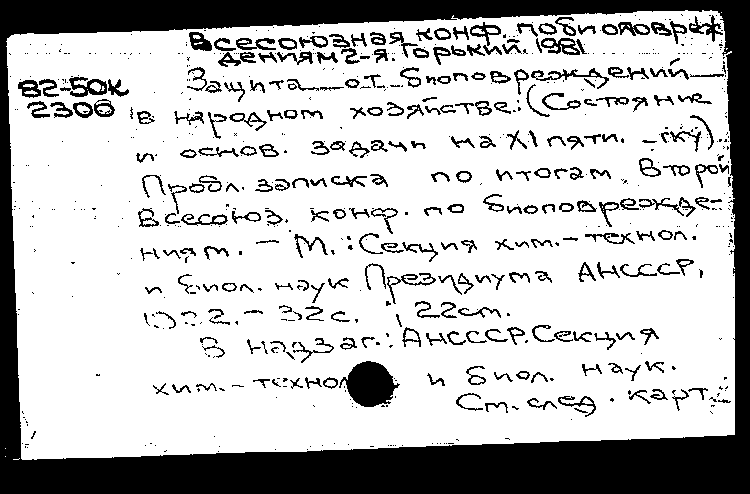 Всесоюзная конф. по биоповреж
дениям 2-я. Горький. 1981
82-50к
2300
Защита от биоповреждений
в народном хозяйстве: (Состояние
и основ. задачи на XI пяти. -тку).
Пробл. записка по итогам Второй
Всесоюз. конф. по биоповрежде-
ниям. - М.: Секция хим.-технол.
и биол. наук Президиума АНСССР,
- 32с. ; 22см.
В надзаг.: АНСССР. Секция
хим.-технол. и биол. наук.
См. след. карт.